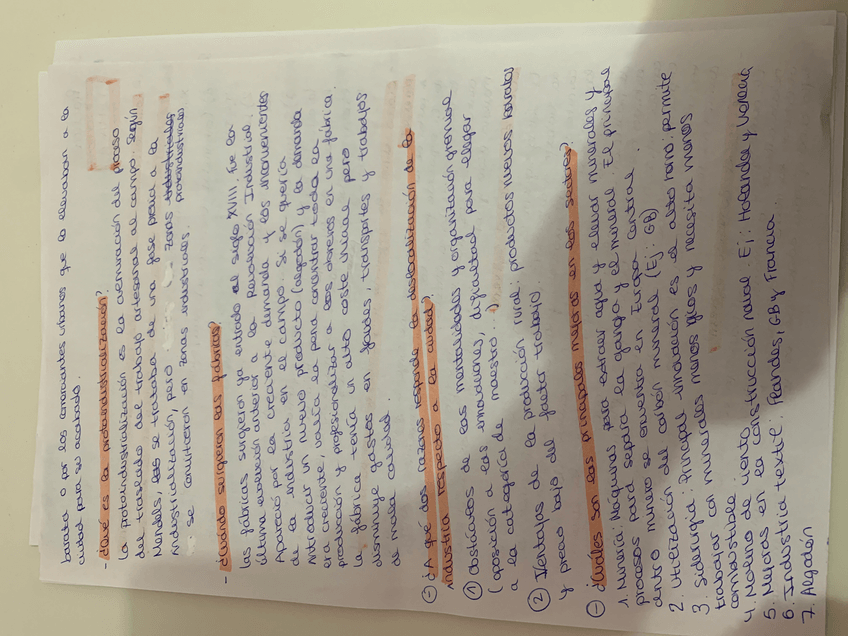 barata o por los comerciantes urbanos que la llevaban a la
ciudad para su acabado.
- ¿Qué es la protoindustrialización?
La protoindustrialización es la denominación del proceso
del traslado del trabajo artesanal al campo. Según
Mendels, se trataba de una fase previa a la
industrialización, pero zonas industriales
se convirtieron en zonas industriales protoindustriales
- ¿Cuándo surgieron las fábricas?
Las fábricas surgieron ya entrado el siglo XVIII. Fue la
última evolución anterior a la Revolución Industrial.
Apareció por la creciente demanda y los inconvenientes
de la industria en el campo. Si se quería
introducir un nuevo producto (algodón) y la demanda
era creciente, valía la pena concentrar toda la
producción y profesionalizar a los obreros en una fábrica.
La fábrica tenía un alto coste inicial pero
disminuye gastos en fraudes, transportes y trabajos
de mala calidad.
- ¿A qué dos razones responde la deslocalización de la
industria respecto a la ciudad?
① Obstáculos de las mentalidades y organización gremial
(oposición a las innovaciones, dificultad para llegar
a la categoría de maestro...)
② Ventajas de la producción rural: productos nuevos, baratos
y precio bajo del factor trabajo.
- ¿Cuáles son las principales mejoras en los sectores?
1. Minería: Máquinas para extraer agua y elevar minerales y
procesos para separar la ganga y el mineral. El principal
centro minero se encuentra en Europa Central.
2. Utilización del carbón mineral (Ej: GB)
3. Siderurgia: Principal innovación es el alto horno: permite
trabajar con minerales menos ricos y necesita menos
combustible.
4. Molino de viento
5. Mejoras en la construcción naval. Ej: Holanda y Venecia
6. Industria textil: Flandes, GB y Francia
7. Algodón